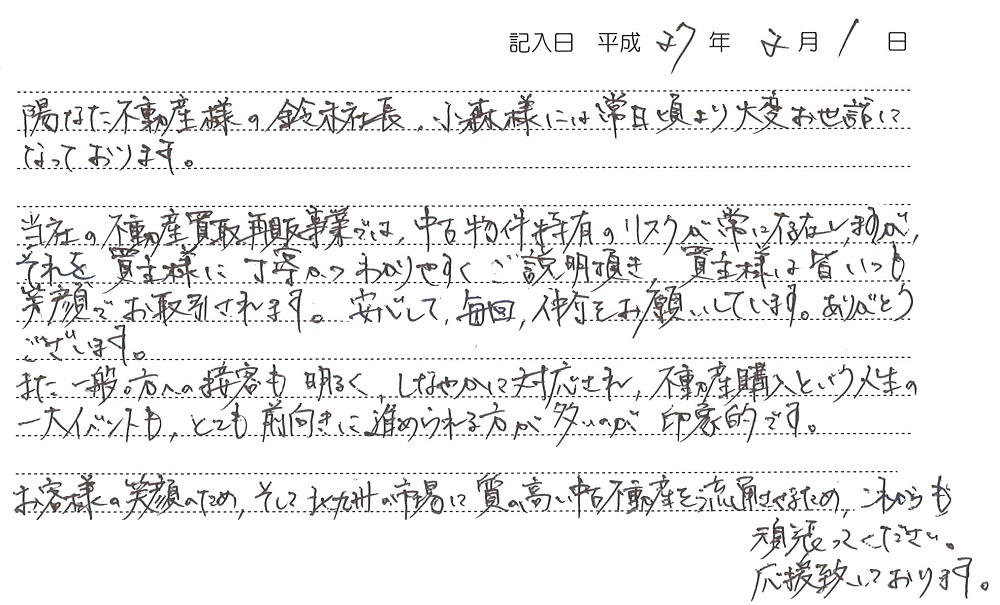 記入日 平成 27 年 2 月 1 日
陽なた不動産様の鈴木社長、小森様には常日頃より大変お世話に
なっております。
当社の不動産買取再販事業では、中古物件特有のリスクが常に存在しますが、
それを買主様に丁寧かつわかりやすくご説明頂き、買主様は皆いつも
笑顔でお取引されます。安心して、毎回、仲介をお願いしています。ありがとう
ございます。
また一般の方への接客も明るく、しなやかに対応され、不動産購入という人生の
一大イベントも、とても前向きに進められる方が多いのが印象的です。
お客様の笑顔のため、そして北九州の市場に質の高い中古不動産を流通させるため、これからも
頑張ってください。
応援致しております。